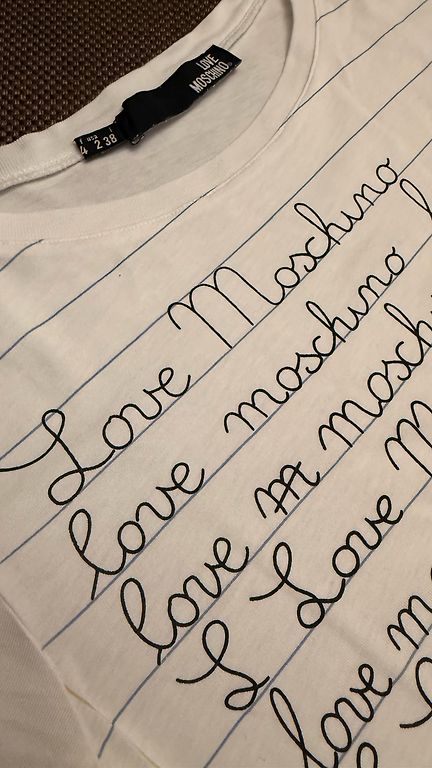 LOVE
MOSCHINO
USA I
4 2 38
Love Moschino
love moschino
love m moschin
I Love M
love mo